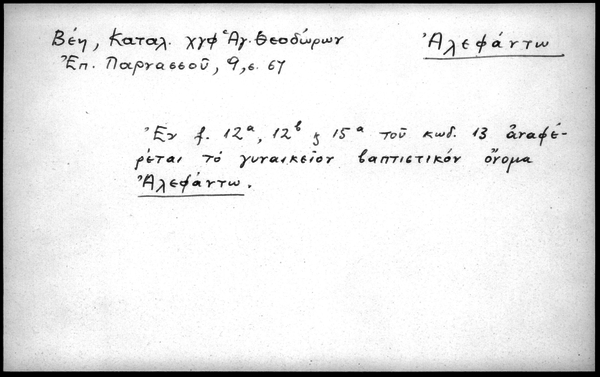 Βέη, Καταλ. χγφ Ἁγ. Θεοδώρων
Ἀλεφάντω
Ἐπ. Παρνασσοῦ, 9, σ. 67
Ἐν f. 12ᵃ, 12ᵇ ϗ 15ᵃ τοῦ κωδ. 13 ἀναφέ-
ρεται τὸ γυναικεῖον βαπτιστικόν ὄνομα
Ἀλεφάντω.